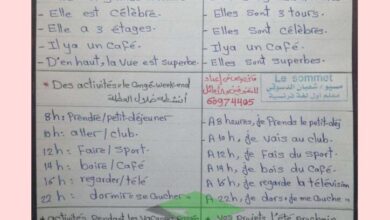 - Elle est Célèbre.
- Elle a 3 étages.
- Il ya un Café.
- D'en haut, la Vue est superbe.
- Elles sont 3 tours.
- Elles sont Célèbres.
- Il ya un Café.
- Elles sont superbes.
* Des activités le Congé-week-end
8h: Prendre/petit-déjeuner
10h: aller/club.
12h: Faire/sport.
14h: boire/Café
16h: regarder/télé
22h: dormir = se Coucher
Le sommet
مسيو / شعبان الدسوقي
معلم أول لغة فرنسية
60974405
A 8 heures, je Prends le petit-déj
A 10h, je vais au club.
A 12h, je fais du sport.
A 14h, je bois du Café
A 16h, je regarde la télévision
A 22h, je dors = je me Couche